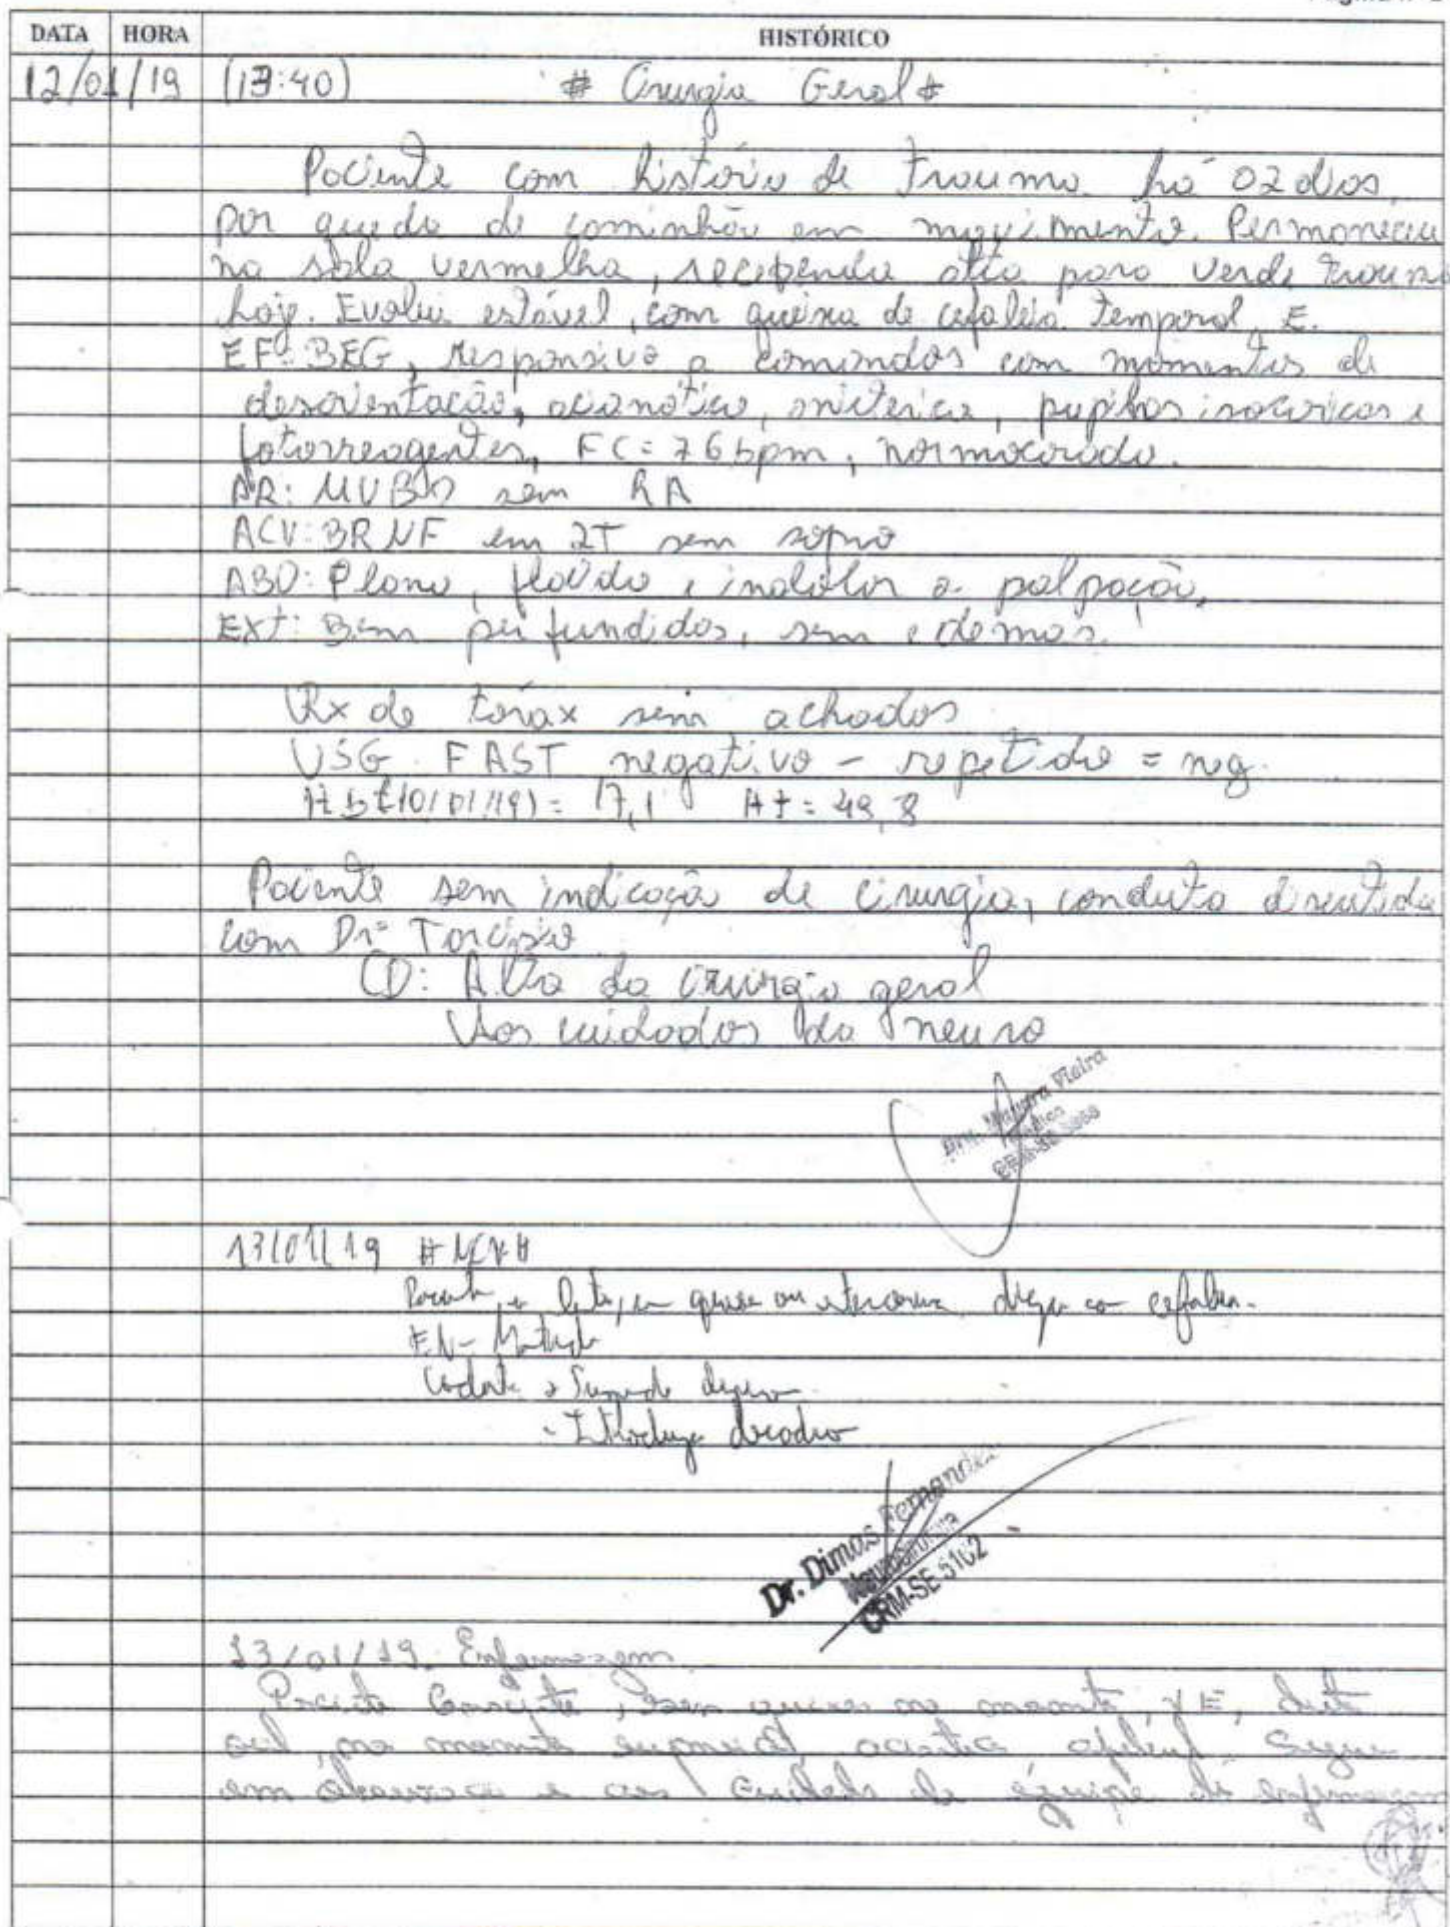 DATA HORA HISTÓRICO
12/01/19 (13:40) # Cirurgia Geral #
Paciente com história de trauma há 02 dias
por queda de caminhão em movimento. Permaneceu
na sala vermelha, recebendo alta para verde trauma
hoje. Evolui estável, com queixa de cefaleia temporal E.
EF: BEG, responsivo a comandos com momentos de
desorientação, acianótico, anictérico, pupilas isocóricas e
fotorreagentes, FC = 76 bpm, normocorado.
AR: MVBD sem RA
ACV: BRNF em 2T sem sopro
ABD: Plano, flácido, indolor a palpação.
Ext: Bem perfundidos, sem edemas.
Rx de tórax sem achados
USG FAST negativo – repetido = neg.
Hb (10/01/19) = 17,1 Ht = 49,8
Paciente sem indicação de cirurgia, conduta discutida
com Drº Tarcisio
CD: Alta da cirurgia geral
Aos cuidados da neuro
Vieira
13/01/19 # NCR #
queixa cefaleia.
EN-
- Introduzo
Dr. Dimas Fernandes
Neurocirurgia
CRM-SE 5102
13/01/19. Enfermagem
Paciente Consciente, sem queixas no momento, dieta
oral, no momento afebril. Segue
em observação e aos cuidado da équipe de enfermagem